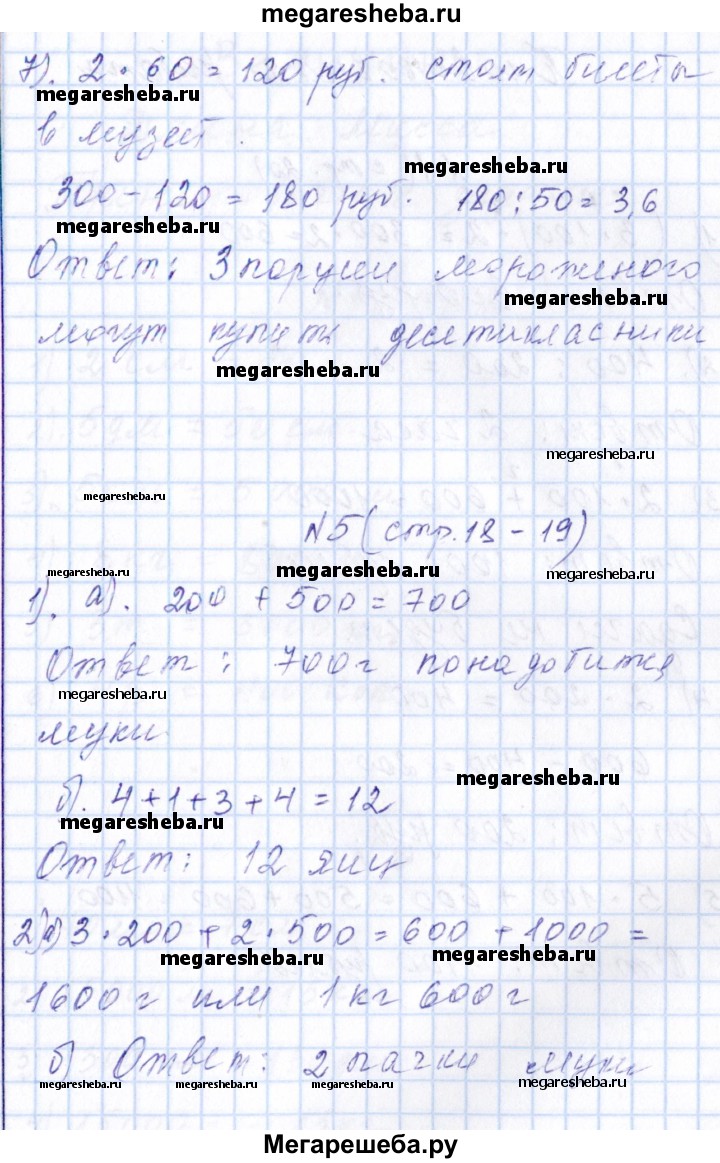 megaresheba.ru
7). 2 · 60 = 120 руб. стоят билеты
megaresheba.ru
в музей.
megaresheba.ru
300 - 120 = 180 руб. 180 : 50 = 3,6
megaresheba.ru
Ответ: 3 порции мороженого
megaresheba.ru
могут купить десятикласники
megaresheba.ru
megaresheba.ru
megaresheba.ru
N5 (стр. 18 - 19)
megaresheba.ru megaresheba.ru megaresheba.ru
1). а). 200 + 500 = 700
Ответ: 700 г понадобится
megaresheba.ru
муки
megaresheba.ru
б). 4 + 1 + 3 + 4 = 12
megaresheba.ru
Ответ: 12 яиц
2) а) 3 · 200 + 2 · 500 = 600 + 1000 =
megaresheba.ru megaresheba.ru
1600 г или 1 кг 600 г
б) Ответ: 2 пачки муки
megaresheba.ru megaresheba.ru megaresheba.ru megaresheba.ru
Мегарешеба.ру